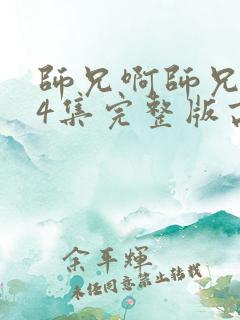 師兄啊師兄
4集完整版
余平輝
未经同意禁止转载